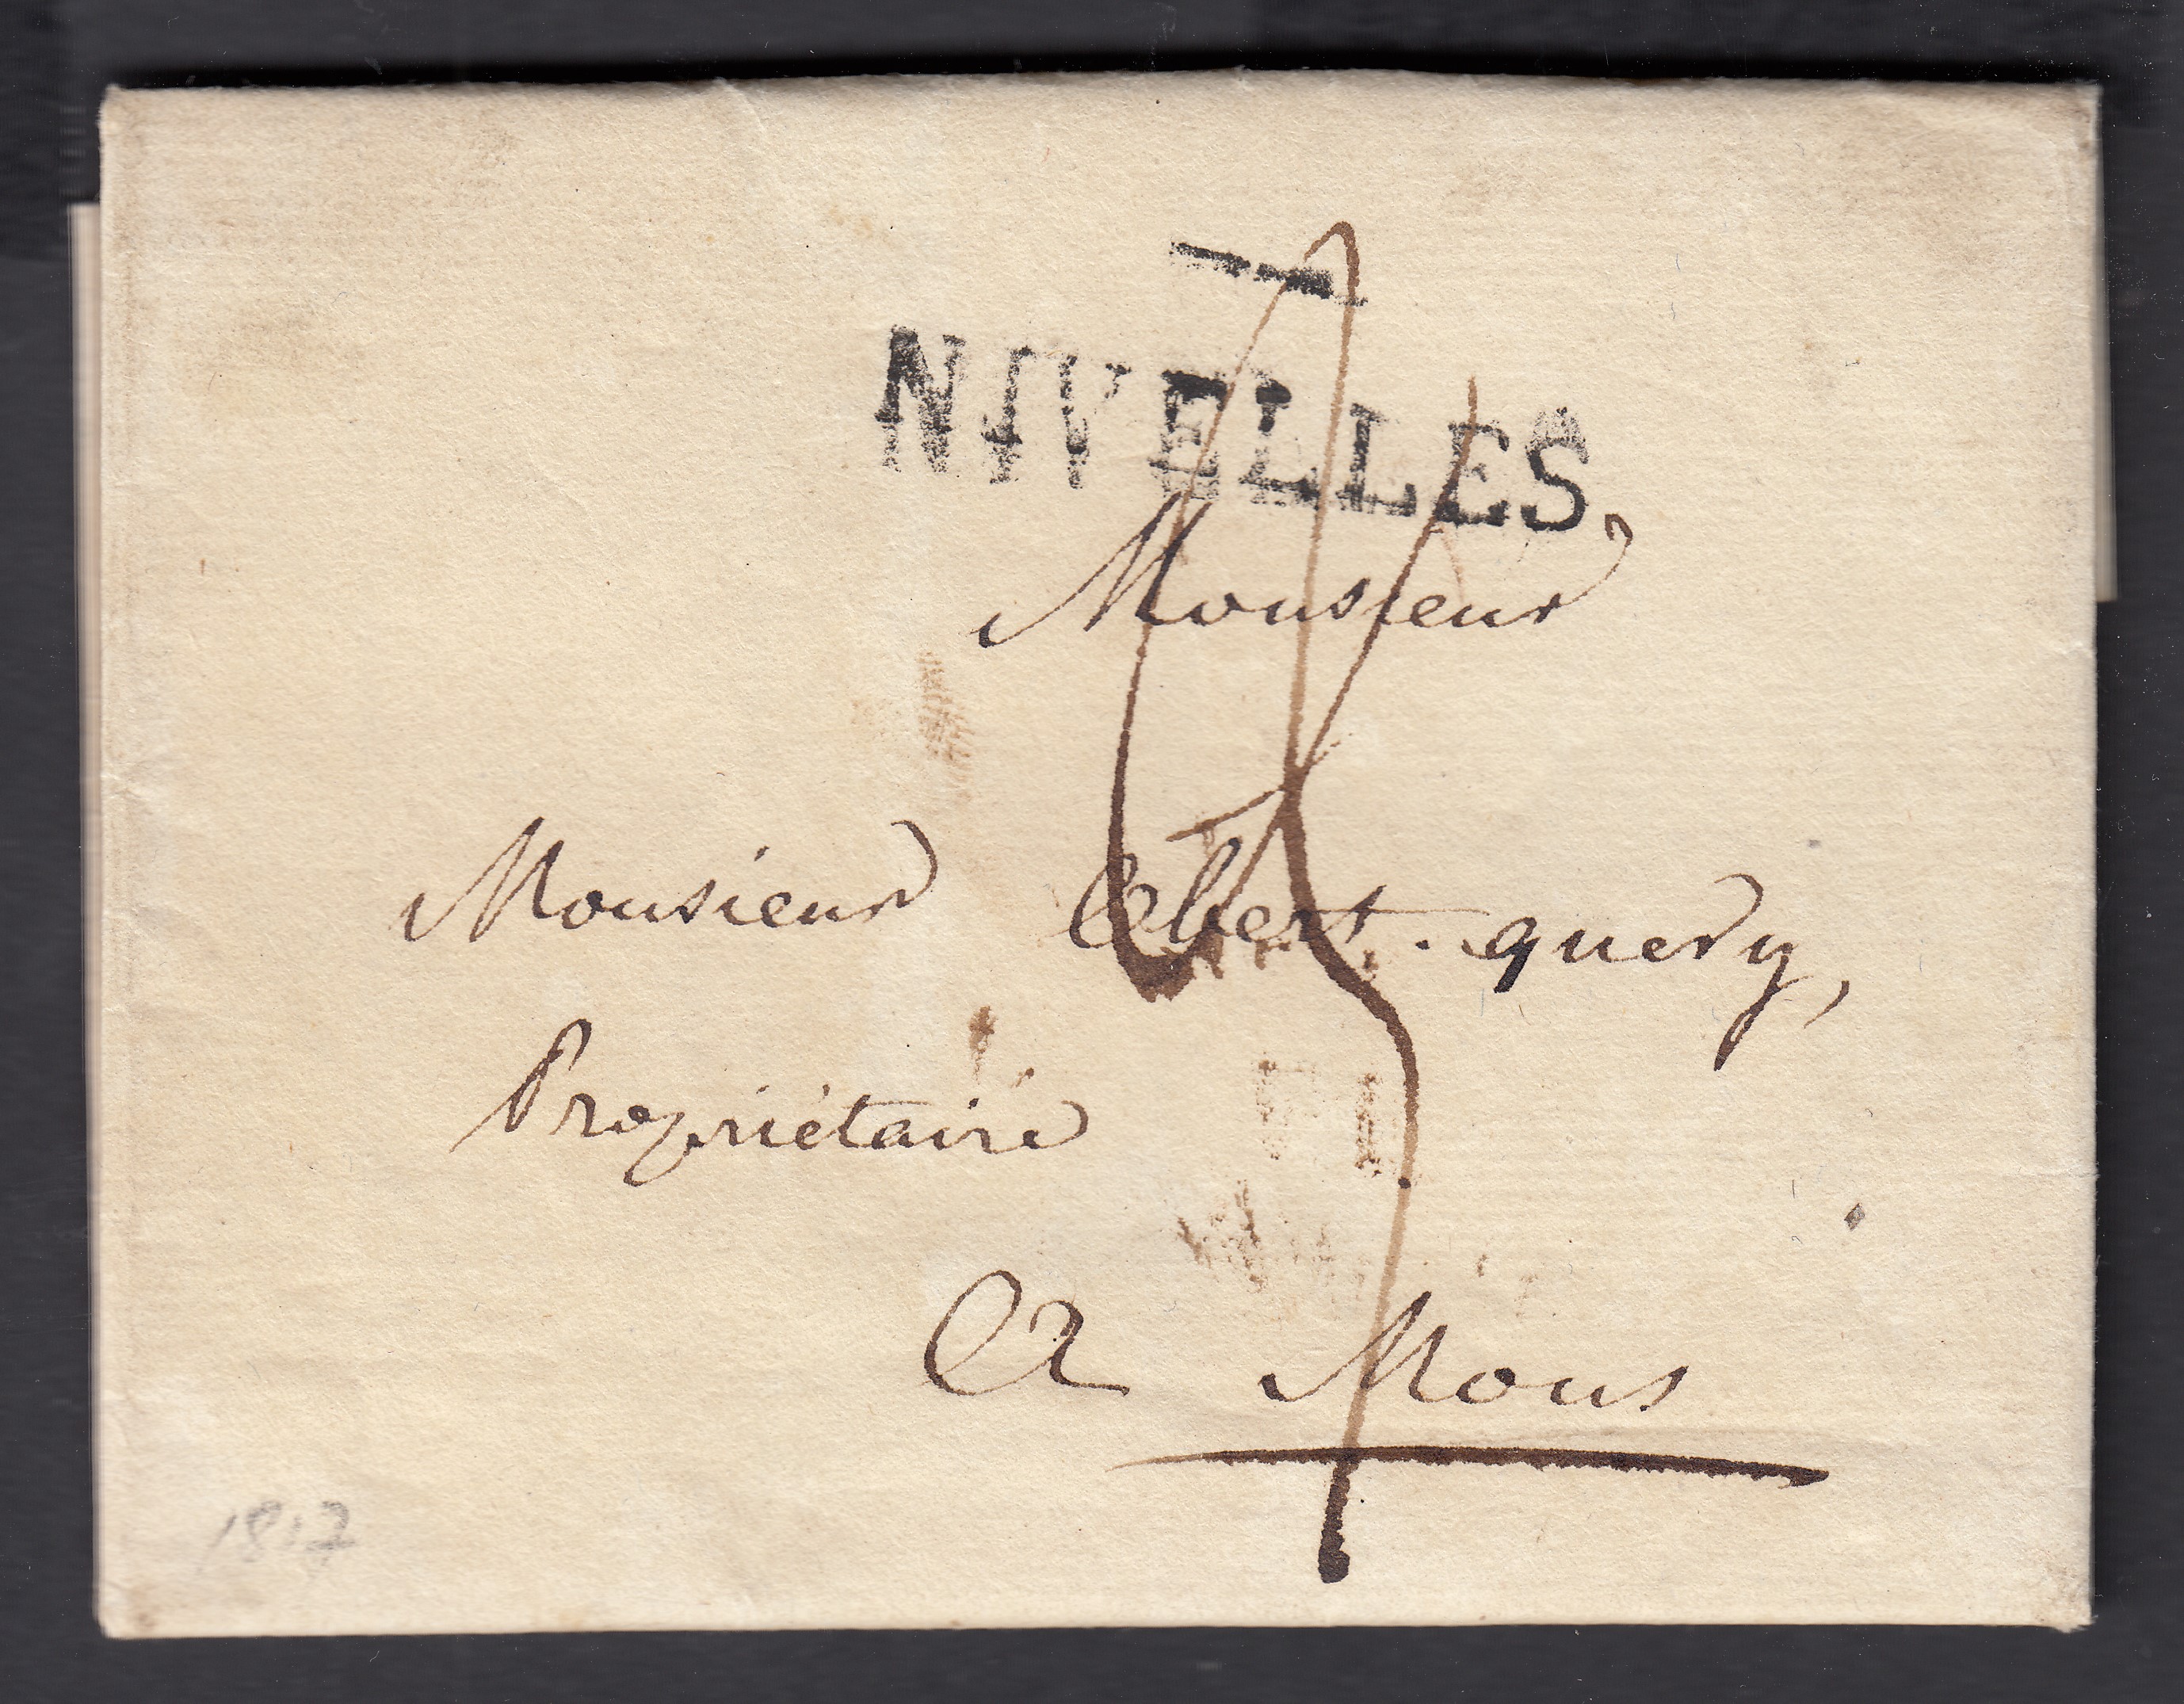 NIVELLES
Monsieur
Monsieur query,
Propriétaire
a Mons
1817